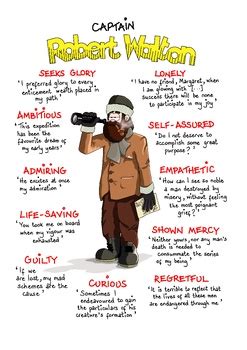 CAPTAIN
Robert Walton
SEEKS GLORY
'I preferred glory to every
enticement wealth placed in
my path'
LONELY
'I have no friend, Margaret, when I
am glowing with [...]
success there will be none
to participate in my joy
AMBITIOUS
'This expedition
has been the
favourite dream of
my early years'
SELF-ASSURED
'Do I not deserve to
accomplish some great
purpose?'
ADMIRING
'He excites at once
my admiration'
EMPATHETIC
'How can I see so noble
a man destroyed by
misery, without feeling
the most poignant
grief?'
LIFE-SAVING
'You took me on board
when my vigour was
exhausted'
SHOWN MERCY
'Neither yours, nor any man's
death is needed to
consummate the series
of my being'
GUILTY
'If we
are lost, my mad
schemes are the
cause'
CURIOUS
'Sometimes I
endeavoured to gain
the particulars of his
creature's formation'
REGRETFUL
'It is terrible to reflect that
the lives of all these men
are endangered through me'